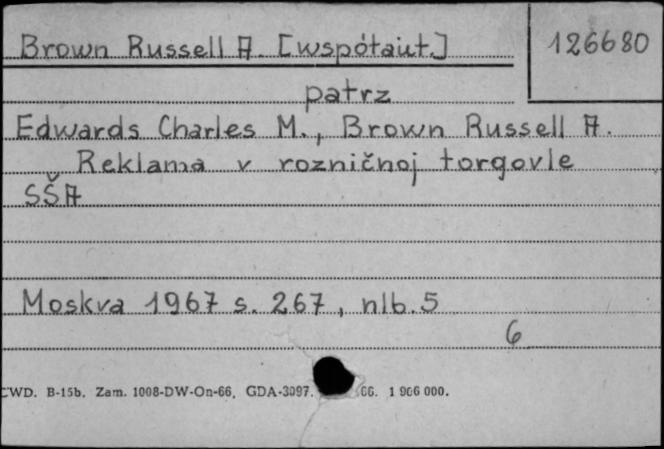 Brown Russell A. [współaut.]
126680
patrz
Edwards Charles M., Brown Russell A.
Reklama v rozničnoj torgovle
SŠA
Moskva 1967 s. 267, nlb. 5
6
CWD. B-15b. Zam. 1008-DW-On-66. GDA-3097. 66. 1 966 000.